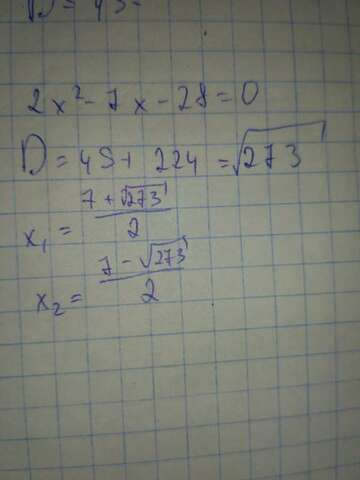 2x² - 7x - 28 = 0
D = 49 + 224 = √273
x₁ = (7 + √273)/2
x₂ = (7 - √273)/2